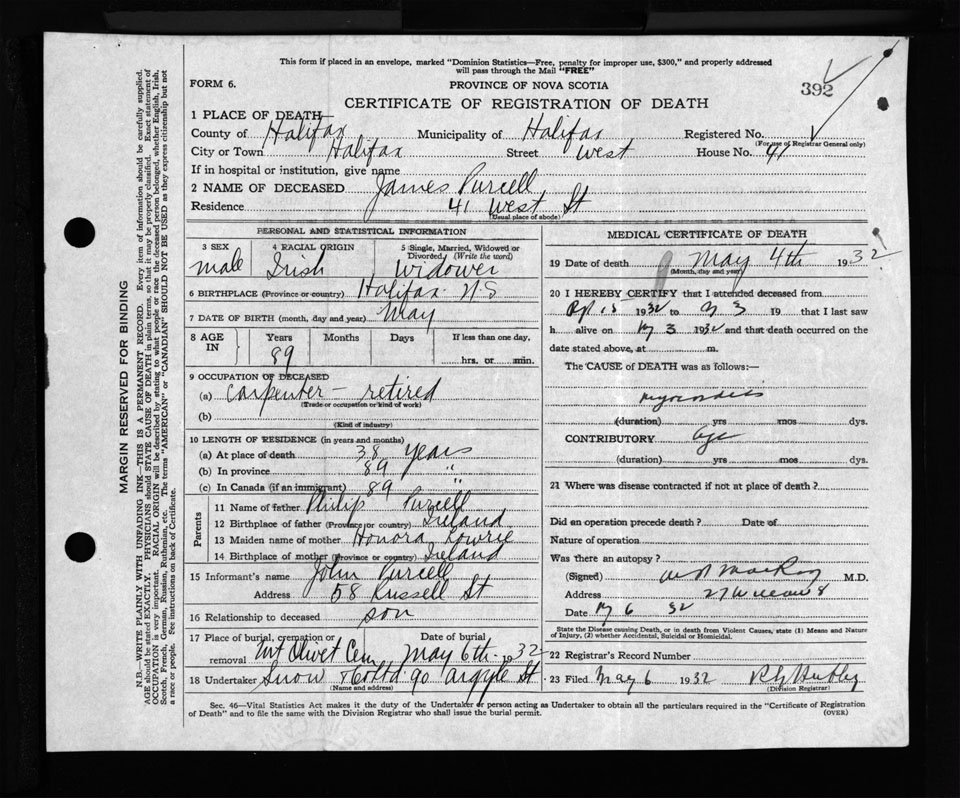 This form if placed in an envelope, marked "Dominion Statistics—Free, penalty for improper use, $300," and properly addressed
will pass through the Mail "FREE"
FORM 6.
PROVINCE OF NOVA SCOTIA
392
CERTIFICATE OF REGISTRATION OF DEATH
1 PLACE OF DEATH
County of Halifax Municipality of Halifax Registered No.
(For use of Registrar General only)
City or Town Halifax Street West House No. 41
If in hospital or institution, give name
2 NAME OF DECEASED James Purcell
Residence 41 West St
(Usual place of abode)
PERSONAL AND STATISTICAL INFORMATION
3 SEX 4 RACIAL ORIGIN 5 Single, Married, Widowed or Divorced (Write the word)
male Irish Widower
6 BIRTHPLACE (Province or country) Halifax N.S
7 DATE OF BIRTH (month, day and year) May
8 AGE IN Years Months Days If less than one day,
89 hrs. or min.
9 OCCUPATION OF DECEASED
(a) Carpenter – retired
(Trade or occupation or kind of work)
(b)
(Kind of industry)
10 LENGTH OF RESIDENCE (in years and months)
(a) At place of death 38 years
(b) In province 89 "
(c) In Canada (if an immigrant) 89 "
Parents
11 Name of father Philip Purcell
12 Birthplace of father (Province or country) Ireland
13 Maiden name of mother Honora Lowrie
14 Birthplace of mother (Province or country) Ireland
15 Informant's name John Purcell
Address 58 Russell St
16 Relationship to deceased son
17 Place of burial, cremation or removal Mt Olivet Cem Date of burial May 6th 1932
18 Undertaker Snow & Co Ltd 90 Argyle St
(Name and address)
MEDICAL CERTIFICATE OF DEATH
19 Date of death May 4th 1932
(Month, day and year)
20 I HEREBY CERTIFY that I attended deceased from
15 1932 to 3 19 that I last saw
h alive on 3 1932 and that death occurred on the
date stated above, at m.
The CAUSE of DEATH was as follows:—
(duration) yrs mos dys.
CONTRIBUTORY Age
(duration) yrs mos dys.
21 Where was disease contracted if not at place of death?
Did an operation precede death? Date of
Nature of operation
Was there an autopsy?
(Signed) MacKay M.D.
Address 27
Date 6 32
State the Disease causing Death, or in death from Violent Causes, state (1) Means and Nature
of Injury, (2) whether Accidental, Suicidal or Homicidal.
22 Registrar's Record Number
23 Filed May 6 1932
(Division Registrar)
Sec. 46—Vital Statistics Act makes it the duty of the Undertaker or person acting as Undertaker to obtain all the particulars required in the "Certificate of Registration
of Death" and to file the same with the Division Registrar who shall issue the burial permit.
(OVER)
MARGIN RESERVED FOR BINDING
N.B.—WRITE PLAINLY WITH UNFADING INK—THIS IS A PERMANENT RECORD. Every item of information should be carefully supplied.
AGE should be stated EXACTLY. PHYSICIANS should STATE CAUSE OF DEATH in plain terms, so that it may be properly classified. Exact statement of
OCCUPATION is very important. RACIAL ORIGIN will be described by stating to what people or race the deceased person belonged, whether English, Irish,
Scotch, French, German, Russian, Ruthenian, etc. The terms "AMERICAN" or "CANADIAN" SHOULD NOT BE USED as they express citizenship but not
a race or people. See instructions on back of Certificate.